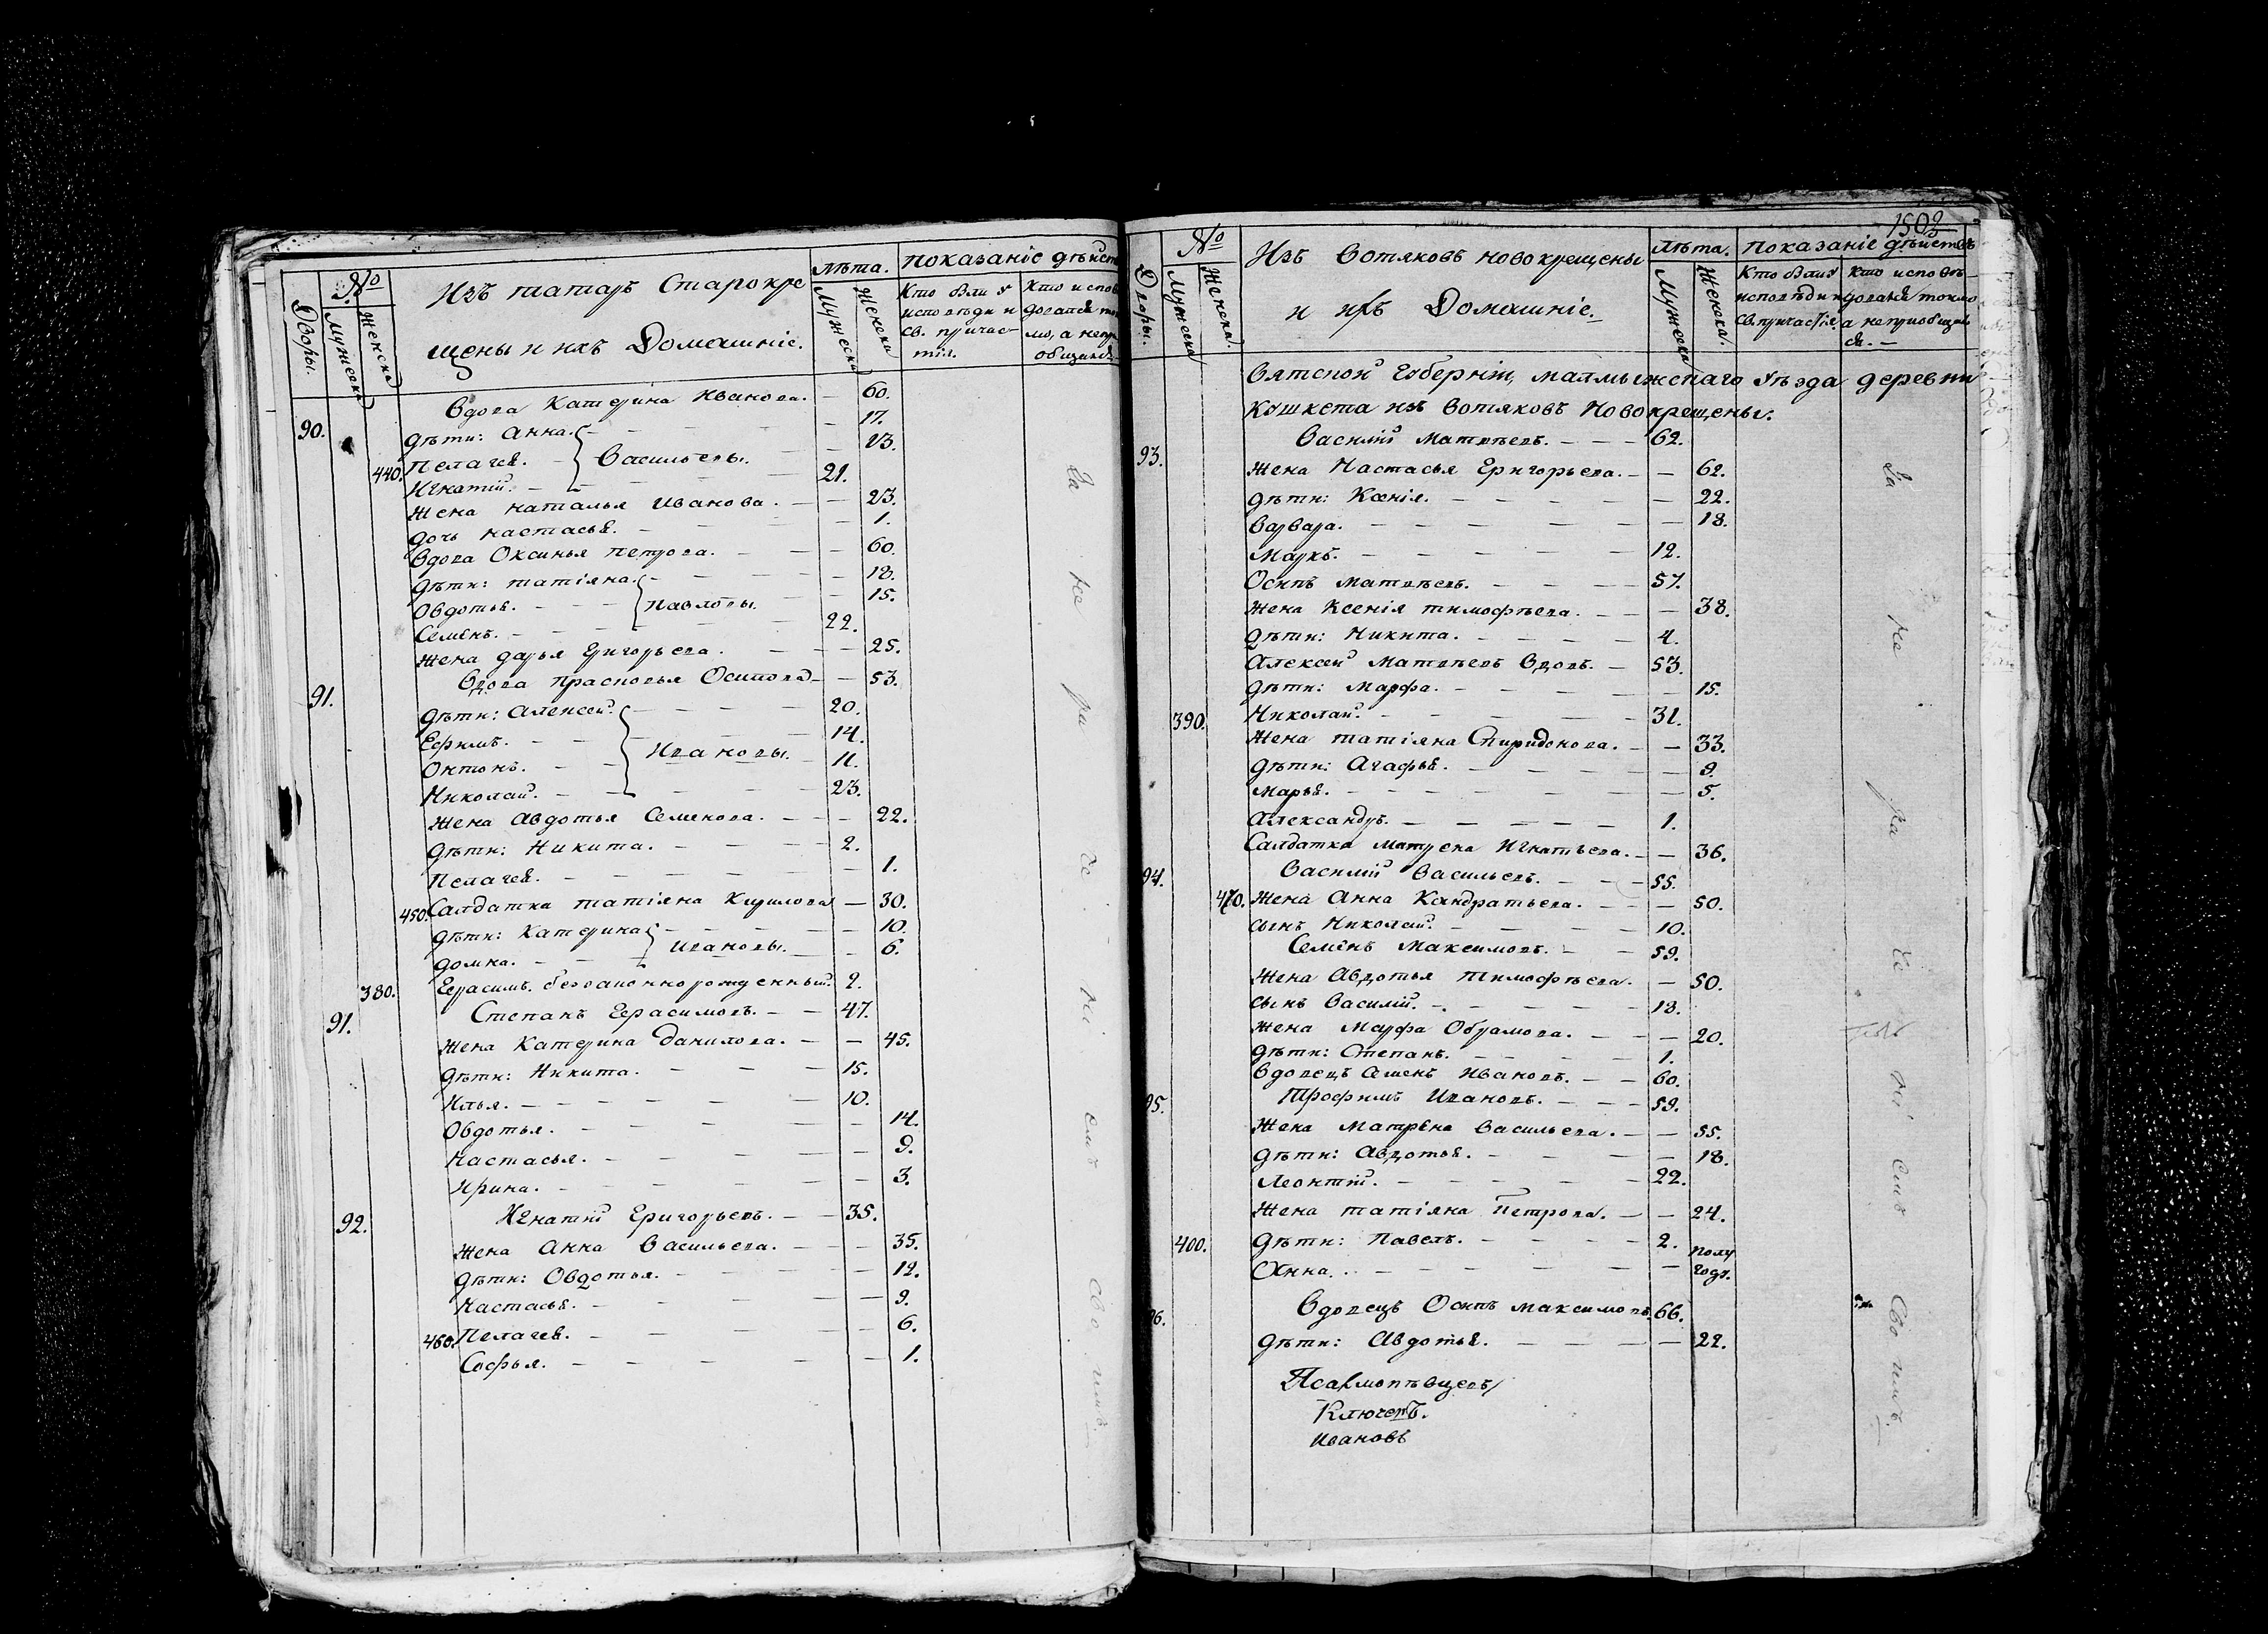 №
Дворы.
Мужеска
Женска
Изъ татаръ Старокре
щены и ихъ Домашніе.
Лѣта.
Мужеска
Женска
показаніе дѣйст
Кто были у
исповѣди и
св. причас-
тія.
Кто испов
довался ток
мо, а непр
общился
90. Вдова Катерина Иванова. — 60.
дѣти: Анна. — 17.
440. Пелагея. — Васильевы. — 23.
Игнатій. — 21.
Жена наталья Иванова. — 23.
дочь настасья. — 1.
Вдова Оксинья петрова. — 60.
дѣти: татіяна. — 18.
Овдотья. — Павловы. — 15.
Семенъ. — 22.
Жена дарья Григорьева. — 25.
91. Вдова прасковья Осипова — 53.
дѣти: Алексей. — 20.
Ефимъ. — 14.
Онтонъ. — Ивановы. — 11.
Николай. — 23.
Жена Авдотья Семенова. — 22.
дѣти: Никита. — 2.
Пелагея. — 1.
450. Салдатка татіяна Кирилова — 30.
дѣти: Катерина — 10.
домна. — Ивановы. — 6.
380. Герасимъ. беззаконнорожденный. 2.
91. Степанъ Герасимовъ. — 47.
Жена Катерина Данилова. — 45.
дѣти: Никита. — 15.
Илья. — 10.
Овдотья. — 14.
Настасья. — 9.
Ирина. — 3.
92. Игнатій Григорьевъ. — 35.
Жена Анна Васильева. — 35.
дѣти: Овдотья. — 12.
Настасья. — 9.
460. Пелагея. — 6.
Софья. — 1.
За не ра че ні емъ сво имъ
1502
№
Дворы.
Мужеска
Женска.
Изъ Вотяковъ новокрещены
и ихъ Домашніе.
Лѣта.
Мужеска
Женска.
показаніе дѣйствъ
Кто были у
исповѣди и
св. причастія,
кто исповѣ-
довался токмо
а непріобщил
ся. —
Вятской Губерніи, малмыжскаго уѣзда деревни
Кушкета изъ Вотяковъ Новокрещены.
93. Василій Матвѣевъ. — 62.
Жена Настасья Григорьева. — 62.
дѣти: Ксенія. — 22.
Варвара. — 18.
Маркъ. — 12.
Осипъ Матвѣевъ. — 57.
Жена Ксенія тимофѣева. — 38.
дѣти: Никита. — 4.
Алексей Матвѣевъ Вдовъ. — 53.
дѣти: Марфа. — 15.
390. Николай. — 31.
Жена татіяна Спиридонова. — 33.
дѣти: Агафья. — 9.
Марья. — 5.
Александръ. — 1.
Салдатка Матрена Игнатьева. — 36.
94. Василій Васильевъ. — 55.
470. Жена Анна Кандратьева. — 50.
сынъ Николай. — 10.
Семенъ Максимовъ. — 59.
Жена Авдотья тимофѣева. — 50.
сынъ Василій. — 18.
Жена Марфа Обрамова. — 20.
дѣти: Степанъ. — 1.
Вдовецъ Семенъ Ивановъ. — 60.
95. Трофимъ Ивановъ. — 59.
Жена Матрена Васильева. — 55.
дѣти: Авдотья. — 18.
Леонтій. — 22.
Жена татіяна Петрова. — 24.
400. дѣти: Павелъ. — 2.
Анна. — полу
году.
96. Вдовецъ Осипъ максимовъ. 66.
дѣти: Авдотья. — 22.
Псаломовщевъ
Ключевъ.
Ивановъ
За не ра че ні емъ сво имъ